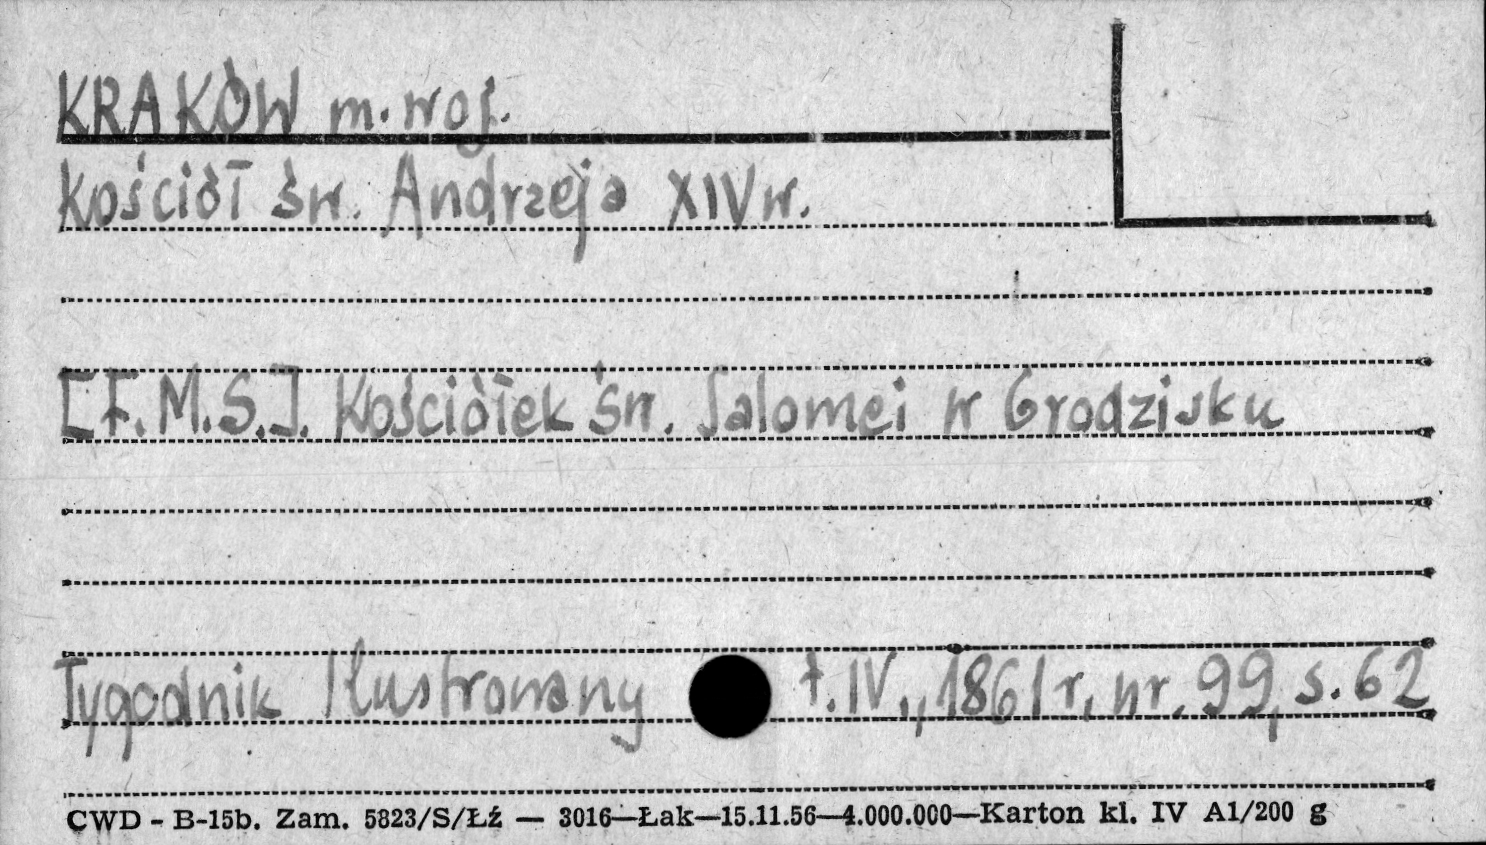 KRAKÓW m. woj.
Kościół św. Andrzeja XIV w.
[F. M. S.]. Kościółek św. Salomei w Grodzisku
Tygodnik Ilustrowany t. IV., 1861 r, nr. 99, s. 62
CWD - B-15b. Zam. 5823/S/Łź — 3016—Łak—15.11.56—4.000.000—Karton kl. IV A1/200 g